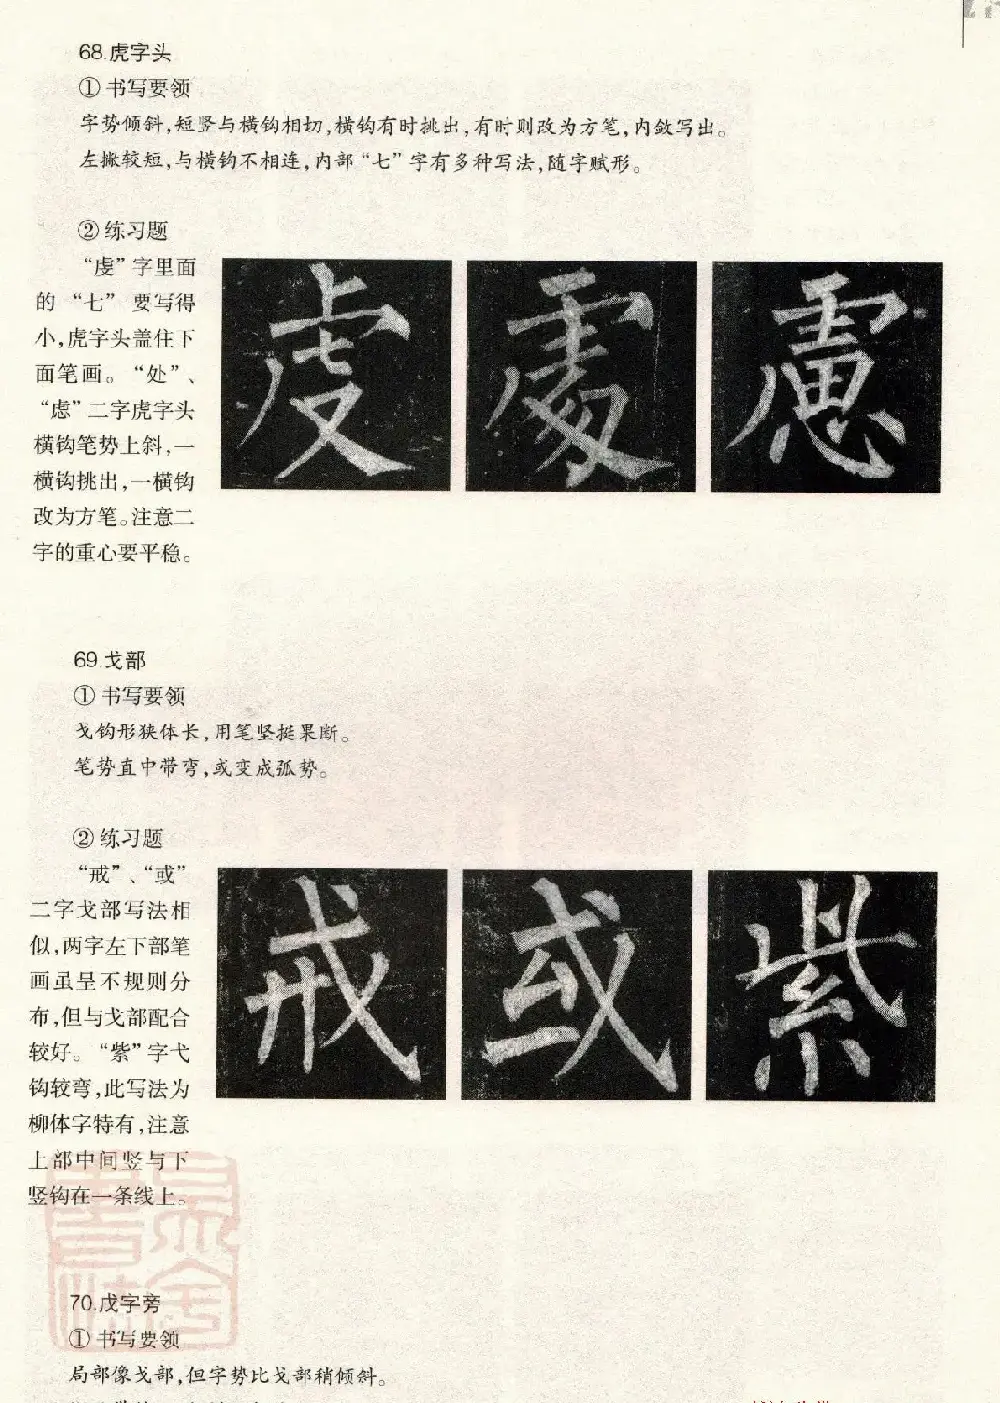 68.虎字头
①书写要领
字势倾斜,短竖与横钩相切,横钩有时挑出,有时则改为方笔,内敛写出。
左撇较短,与横钩不相连,内部“七”字有多种写法,随字赋形。
②练习题
“虔”字里面
的“七”要写得
小,虎字头盖住下
面笔画。“处”、
“虑”二字虎字头
横钩笔势上斜,一
横钩挑出,一横钩
改为方笔。注意二
字的重心要平稳。
虔 處 慮
69.戈部
①书写要领
戈钩形狭体长,用笔坚挺果断。
笔势直中带弯,或变成弧势。
②练习题
“戒”、“或”
二字戈部写法相
似,两字左下部笔
画虽呈不规则分
布,但与戈部配合
较好。“紫”字弋
钩较弯,此写法为
柳体字特有,注意
上部中间竖与下
竖钩在一条线上。
戒 或 紫
70.戊字旁
①书写要领
局部像戈部,但字势比戈部稍倾斜。